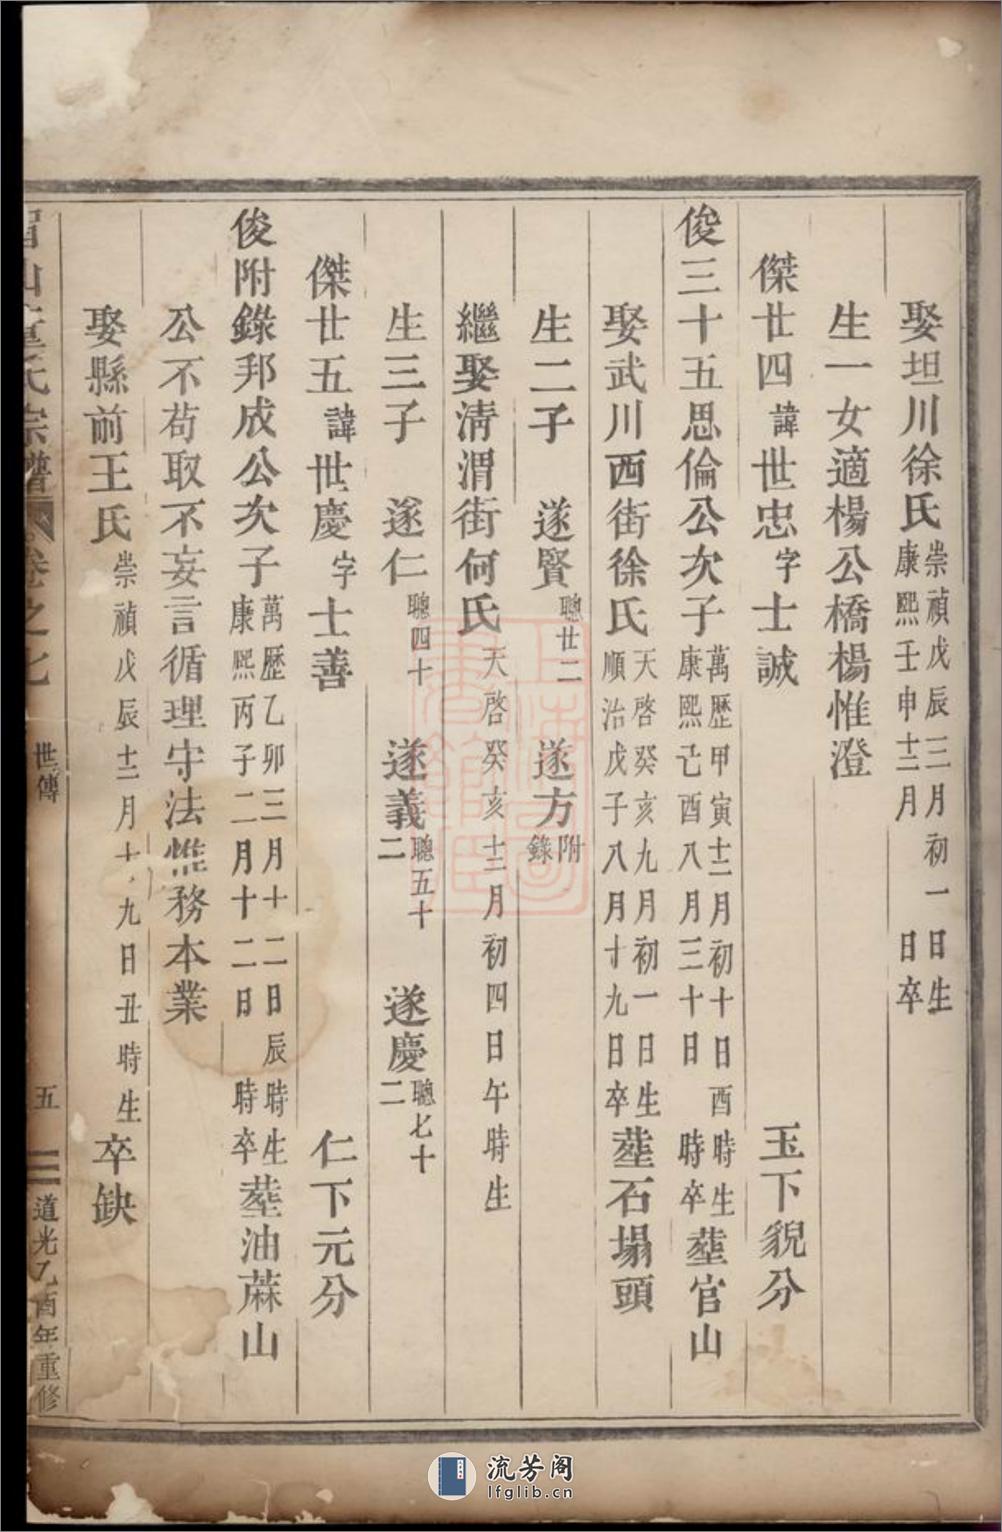 娶坦川徐氏崇禎戊辰三月初一日生康熙壬申十二月日卒
生一女適楊公橋楊惟澄
傑廿四諱世忠字士誠 玉下貌分
俊三十五思倫公次子萬歷甲寅十二月初十日酉時生康熙己酉八月三十日時卒塟官山
娶武川西街徐氏天啓癸亥九月初一日生順治戊子八月十九日卒塟石塌頭
生二子 遂賢聰廿二 遂方附錄
繼娶清渭街何氏天啓癸亥十二月初四日午時生
生三子 遂仁聰四十 遂義聰五十二 遂慶聰七十二
傑廿五諱世慶字士善 仁下元分
俊附錄邦成公次子萬歷乙卯三月十二日辰時生康熙丙子二月十二日時卒塟油蔴山
公不苟取不妄言循理守法惟務本業
娶縣前王氏崇禎戊辰十二月十九日丑時生卒缺
氏宗譜 卷之七 世傳 五 道光乙酉年重修
流芳阁
lfglib.cn